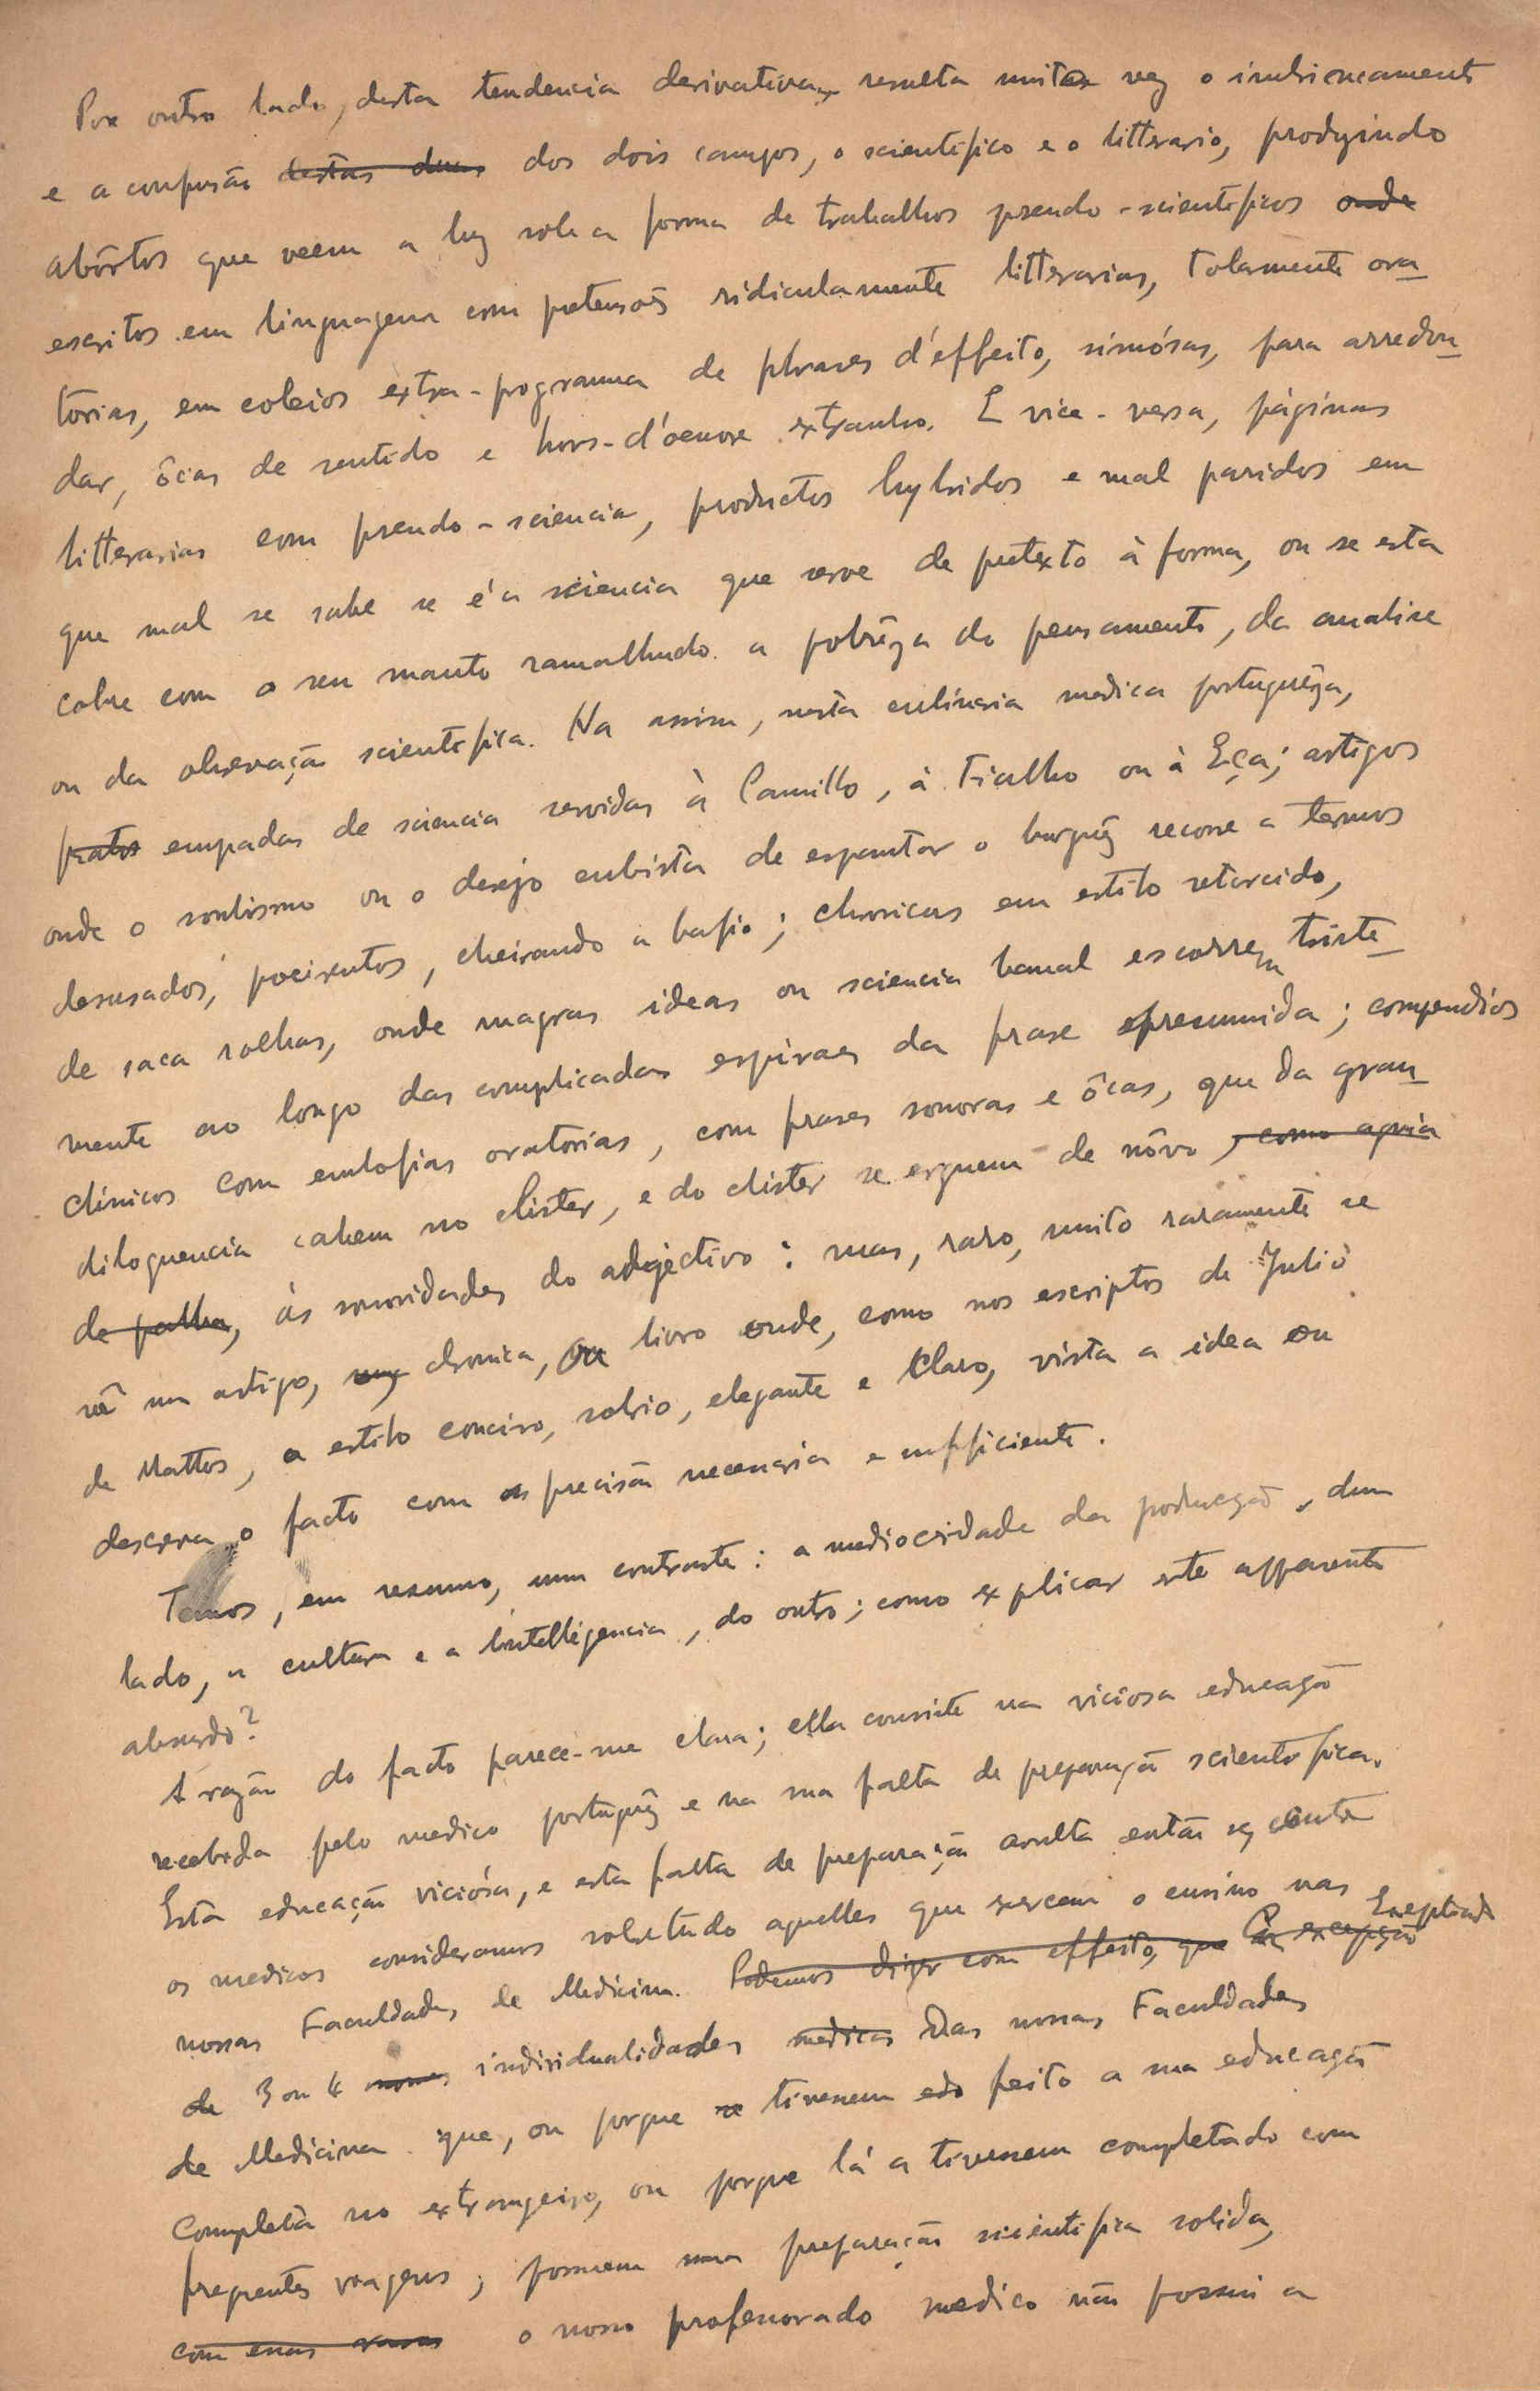 Por outro lado, desta tendencia derivativa, resulta muita vez o imbricamento
e a confusão destas duas dos dois campos, o scientifico e o litterario, produzindo
abôrtos que veem a luz sob a forma de trabalhos pseudo-scientificos onde
escritos em linguagem com pretensões ridiculamente litterarias, tolamente ora
torias, em coleios extra-programma de phrases d'effeito, sinuósas, para arredon
dar, ôcas de sentido e hors-d'oeuvre extranho. E vice-versa, páginas
litterarias com pseudo-sciencia, productos hybridos e mal paridos em
que mal se sabe se é a sciencia que serve de pretexto à forma, ou se esta
cobre com o seu manto ramalhudo a pobrêza do pensamento, da analise
ou da observação scientifica. Ha assim, nesta culinaria medica portuguêza,
pratos empadas de sciencia servidas à Camillo, à Fialho ou à Eça; artigos
onde o snobismo ou o desejo cubista de espantar o burguêz recorre a termos
desusados, poeirentos, cheirando a bafio; chronicas em estilo retorcido,
de saca rolhas, onde magras ideas ou sciencia banal escorrem triste
mente ao longo das complicadas espiraes da frase presumida; compendios
clínicos com embofias oratorias, com frases sonoras e ôcas, que da gran
diloquencia cahem no clister, e do clister se erguem de nôvo, como aguia
de palha, às sonoridades do adjectivo: mas, raro, muito raramente se
vê um artigo, chronica, ou livro onde, como nos escriptos de Julio
de Mattos, o estilo conciso, sobrio, elegante e claro, vista a idea ou
descreva o facto com a precisão necessaria e sufficiente.
Temos, em resumo, um contraste: a mediocridade da producção, dum
lado, a cultura e a intelligencia, do outro; como explicar este apparente
absurdo?
A razão do facto parece-me clara; ella consiste na viciosa educação
recebida pelo medico portuguêz e na sua falta de preparação scientifica.
Esta educação viciósa, e esta falta de preparação avulta então se dentre
os medicos consideramos sobretudo aquelles que exercem o ensino nas
nossas Faculdades de Medicina. Podemos dizer com effeito, que Por excepção Exceptuando
de 3 ou 4 nomes individualidades medicas das nossas Faculdades
de Medicina que, ou porque se tivessem feito a sua educação
completa no extrangeiro, ou porque lá a tivessem completado com
frequentes viagens, possuem uma preparação scientifica solida,
com essas raras o nosso professorado medico não possui a